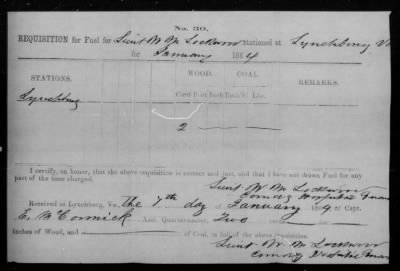 No. 30.
REQUISITION for Fuel for Lieut W M Lockwood Stationed at Lynchburg Va
for January 1864
STATIONS. WOOD. COAL. REMARKS.
Cord Ft
Lynchburg
2
I certify, on honor, that the above requisition is correct and just, and that I have not drawn Fuel for any
part of the time charged.
Lieut W M Lockwood
Received at Lynchburg, Va., the 7th day of January 1864 of Capt.
E. McCormick Asst. Quartermaster, Two
inches of Wood, and of Coal, in full of the above requisition.
Lieut W. M Lockwood